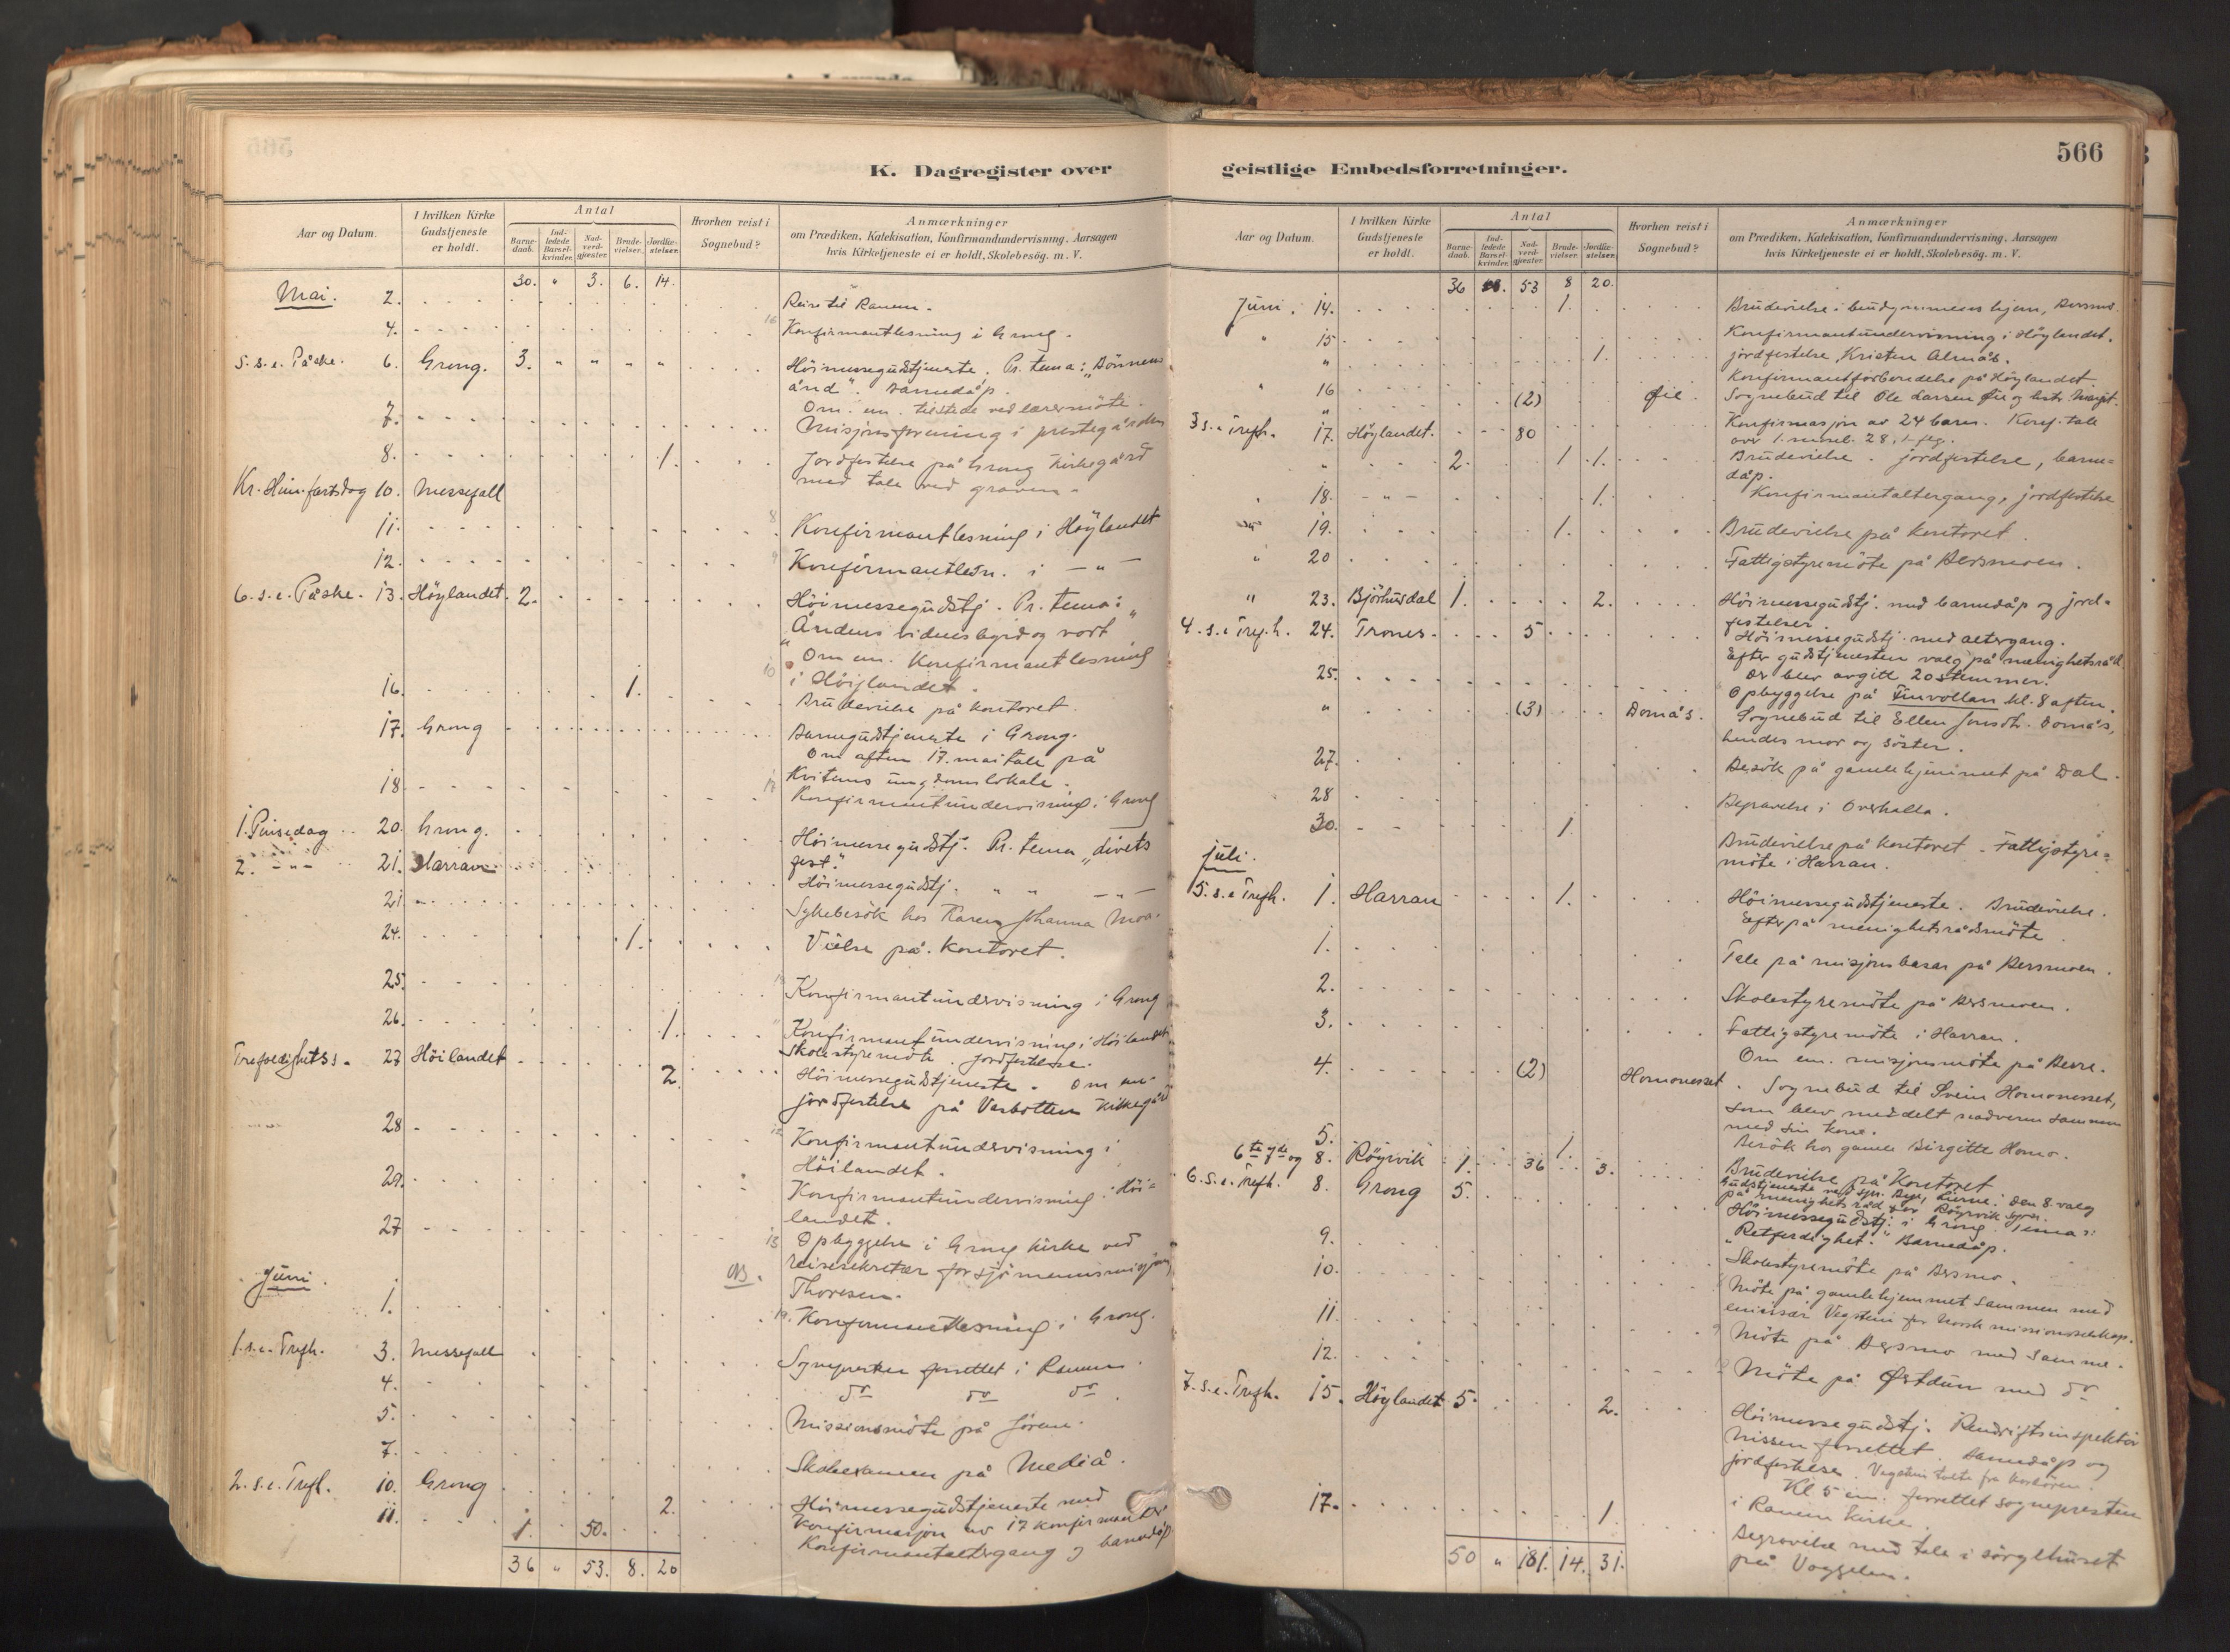 566
K. Dagregister over
geistlige Embedsforretninger.
Aar og Datum.
I hvilken Kirke Gudstjeneste er holdt.
Antal
Barne-daab.
Ind-ledede Barsel-kvinder.
Nad-verd-gjæster.
Brude-vielser.
Jordfæ-stelser.
Hvorhen reist i Sognebud?
Anmærkninger
om Prædiken, Katekisation, Konfirmandundervisning. Aarsagen
hvis Kirketjeneste ei er holdt, Skolebesög. m. V.
30. " 3. 6. 14.
Mai. 2. Reise til Ranem.
4. Konfirmantlesning i Grong.
5. s. e. Påske. 6. Grong. 3. " " " " Höimessegudstjeneste. Pr. tema: "Bönnens
ånd". Barnedåp.
7. Om. em. tilstede ved lærermöte.
Misjonsforening i prestegården
8. 1. Jordfestelse på Grong kirkegård
med tale ved graven.
Kr. Him.fartsdag 10. Messefall
11. 8 Konfirmantlesning i Höylandet
12. 9 Konfirmantlesn. i - " -
6. s. e. Påske. 13. Höylandet. 2. Höimessegudstj. Pr. tema:
"Åndens vidnesbyrd og vort"
Om em. Konfirmantlesning
10 i Höylandet.
16. 1. Brudevielse på kontoret.
17. Grong Barnegudstjeneste i Grong.
Om aften 17. mai tale på
Kvitems ungdomslokale.
18 Konfirmantundervisning i Grong
1. Pinsedag 20. Grong. Höimessegudstj. Pr. tema "Livets
fest."
2. -"- 21. Harran Höimessegudstj. " " -"-
21. Sykebesök hos Karen Johanna Moa.
24. 1. Vielse på kontoret.
25. Konfirmantundervisning i Grong
26. 1. 11 Konfirmantundervisning i Höilandet
Skolestyremöte. Jordfestelse.
Trefoldighetss. 27 Höilandet 2. Höimessegudstjeneste. Om em.
jordfestelse på Vasbotten kirkegård
28 12 Konfirmantundervisning i
Höilandet.
29. Konfirmantundervisning i Höi=
landet.
27 13 Opbyggelse i Grong kirke ved
NB. reisesekretær for sjömannsmisjonen
Thoresen.
Juni. 1. Konfirmantlesning i Grong.
1. s. e. Trefh. 3. Messefall Sognepresten forrettet i Ranem.
4. do do do.
5. Missionsmöte på Jörem.
7. Skoleexamen på Mediå.
2. s. e. Trefh. 10. Grong 2. Höimessegudstjeneste med
Konfirmasjon av 17 konfirmanter
11. 1. 50. Konfirmantaltergang og barnedåp.
36 " 53. 8. 20
Aar og Datum.
I hvilken Kirke Gudstjeneste er holdt.
Antal
Barne-daab.
Ind-ledede Barsel-kvinder.
Nad-verd-gjæster.
Brude-vielser.
Jordfæ-stelser.
Hvorhen reist i Sognebud?
Anmærkninger
om Prædiken, Katekisation, Konfirmandundervisning, Aarsagen
hvis Kirketjeneste ei er holdt, Skolebesög. m. V.
36 53 8 20.
Juni. 14. 1. Brudevielse i brudgommens hjem, Bersmo.
" 15 Konfirmantundervisning i Höylandet.
" 1. jordfestelse, Kristen Almås.
" 16 Konfirmantforberedelse på Höylandet
" (2) Öie. Sognebud til Ole Larsen Öie og hustr. Margit.
3 s. e. Trefh. 17. Höylandet. 80 Konfirmasjon av 24 barn. Konf. tale
over 1. moseb. 28, 1 flg.
" 2. 1. 1. Brudevielse. jordfestelse, barne=
dåp.
" 18. - " - 1. Konfirmantaltergang, jordfestelse
" 19. 1. Brudevielse på kontoret.
" 20 Fattigstyremöte på Bersmoen.
" 23. Björhusdal 1. 2. Höimessegudstj. med barnedåp og jord=
festelser.
4. s. e. Trefh. 24. Trones. 5. Höimessegudstj. med altergang.
Efter gudstjenesten valg på menighetsråd.
Der blev avgitt 20 stemmer.
25. Opbyggelse på Finvollan kl. 8 aften.
" (3) Domås. Sognebud til Ellen Jonsdt. Domås,
hendes mor og söster.
27. Besök på gamlehjemmet på Dal.
28 Begravelse i Overhalla.
30. 1. Brudevielse på kontoret. Fattigstyre=
möte i Harran.
Juli.
5. s. e. Trefh. 1. Harran 1. Höimessegudstjeneste. Brudevielse.
Efterpå menighetsrådsmöte.
1. Tale på misjonsbasar på Bersmoen.
2. Skolestyremöte på Bersmoen.
3. Fattigstyremöte i Harran.
4. Om em. misjonsmöte på Berre.
(2) Homonesset. Sognebud til Svein Homonesset,
som blev meddelt nadveren sammen
med sin kone.
Besök hos gamle Birgitte Homo.
5. 1. Brudevielse på Kontoret
6te 7de og 8. Röyrvik 1. 36 3. Gudstjeneste ved spr. Lierne. Den 8. valg
på menighetsråd for Röyrvik sogn.
6. s. e. Trefh. 8. Grong 5. Höimessegudstj. i Grong. Tema:
"Retferdighet." Barnedåp.
9. Skolestyremöte på Bersmo.
10. 8 Möte på gamlehjemmet sammen med
emissær Vegstein for Norsk missionsselskap.
11. 9 Möte på Bersmo med samme.
12. Möte på Östdun med do
7. s. e. Trefh. 15. Höylandet 5. 2. Höimessegudstj. Rendriftsinspektör
Nissen forrettet. Barnedåp og
jordfestelse. Vegstein talte fra kordören.
Kl. 5 em. forrettet sognepresten
i Ranem kirke.
17. 1. Begravelse med tale i sörgehuset
på Voggelen.
50 " 181. 14. 31.